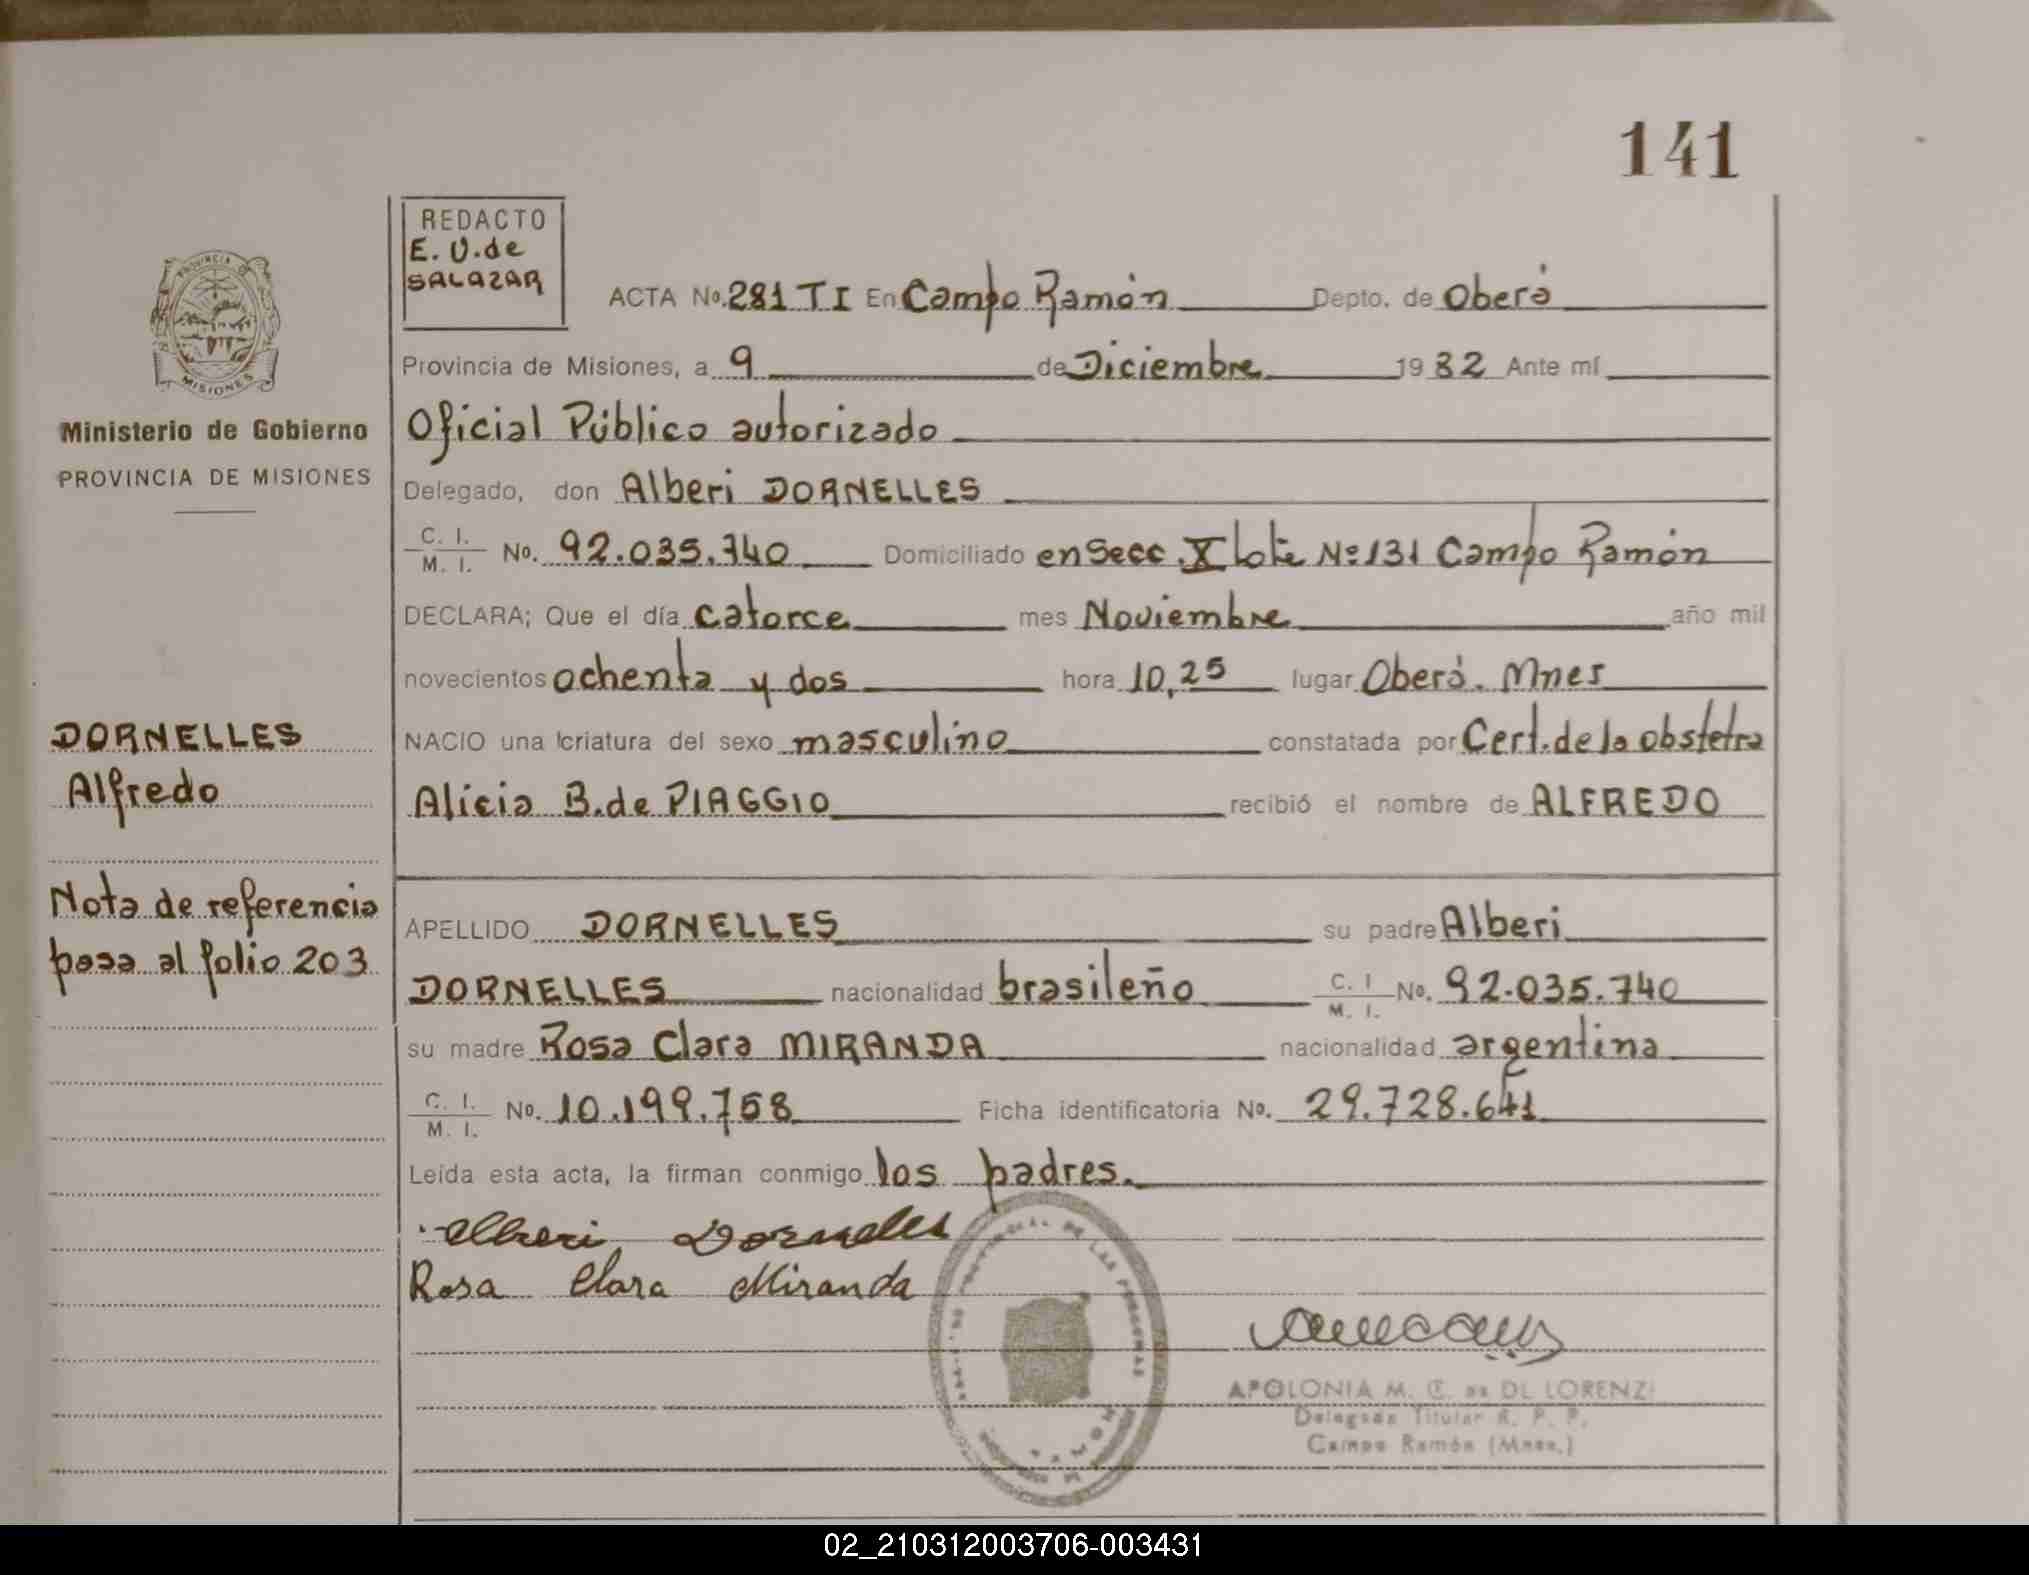 141
REDACTO
E. V. de
SALAZAR
PROVINCIA DE
MISIONES
Ministerio de Gobierno
PROVINCIA DE MISIONES
ACTA No. 281 TI En Campo Ramón Depto. de Oberá
Provincia de Misiones, a 9 de Diciembre 1982 Ante mí
Oficial Público autorizado
Delegado, don Alberi DORNELLES
C. I. M. I. No. 92.035.740 Domiciliado en Secc. X lote Nº 131 Campo Ramón
DECLARA; Que el día catorce mes Noviembre año mil
novecientos ochenta y dos hora 10,25 lugar Oberá. Mnes
NACIO una criatura del sexo masculino constatada por Cert. de la obstetra
Alicia B. de PIAGGIO recibió el nombre de ALFREDO
DORNELLES
Alfredo
Nota de referencia
pasa al folio 203
APELLIDO DORNELLES su padre Alberi
DORNELLES nacionalidad brasileño C. I M. I. No. 92.035.740
su madre Rosa Clara MIRANDA nacionalidad argentina
C. I. M. I. No. 10.199.758 Ficha identificatoria No. 29.728.641
Leída esta acta, la firman conmigo los padres.
Alberi Dornelles
Rosa Clara Miranda
DE LAS PERSONAS
APOLONIA M. C. de DE LORENZI
Delegada Titular R. P. P.
Campo Ramón (Mnes.)
02_210312003706-003431